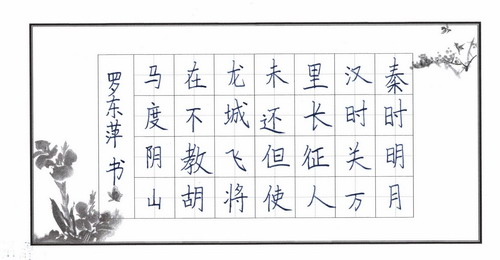 秦时明月
汉时关万
里长征人
未还但使
龙城飞将
在不教胡
马度阴山
罗东萍书